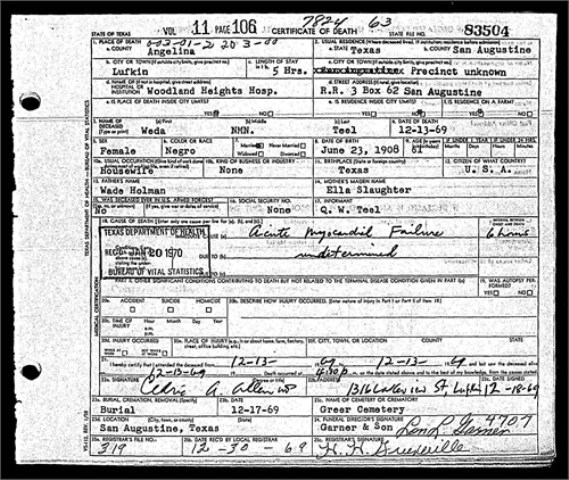 VOL 11 PAGE 106 7824 63
STATE OF TEXAS CERTIFICATE OF DEATH 83504
1. PLACE OF DEATH
a. COUNTY Angelina
2. USUAL RESIDENCE
a. STATE Texas b. COUNTY San Augustine
b. CITY OR TOWN Lufkin
c. LENGTH OF STAY 5 Hrs.
c. CITY OR TOWN Precinct unknown
d. NAME OF HOSPITAL OR INSTITUTION Woodland Heights Hosp.
d. STREET ADDRESS R.R. 3 Box 62 San Augustine
e. IS PLACE OF DEATH INSIDE CITY LIMITS? YES NO
e. IS RESIDENCE INSIDE CITY LIMITS? YES NO
f. IS RESIDENCE ON A FARM? YES NO
3. NAME OF DECEASED (Type or print)
(a) First Weda (b) Middle NMN. (c) Last Teel
4. DATE OF DEATH 12-13-69
5. SEX Female
6. COLOR OR RACE Negro
7. Married Never Married Widowed Divorced
8. DATE OF BIRTH June 23, 1908
9. AGE 61
10a. USUAL OCCUPATION Housewife
10b. KIND OF BUSINESS OR INDUSTRY None
11. BIRTHPLACE (State or foreign country) Texas
12. CITIZEN OF WHAT COUNTRY? U.S.A.
13. FATHER'S NAME Wade Holman
14. MOTHER'S MAIDEN NAME Ella Slaughter
15. WAS DECEASED EVER IN U.S. ARMED FORCES? No
16. SOCIAL SECURITY NO. None
17. INFORMANT Q. W. Teel
18. CAUSE OF DEATH [Enter only one cause per line for (a), (b), and (c).]
TEXAS DEPARTMENT OF HEALTH
REC'D JAN 20 1970
BUREAU OF VITAL STATISTICS
Acute Myocardial Failure 6 hours
DUE TO (b) undetermined
DUE TO (c)
PART II. OTHER SIGNIFICANT CONDITIONS CONTRIBUTING TO DEATH BUT NOT RELATED TO THE TERMINAL DISEASE CONDITION GIVEN IN PART I(a)
19. WAS AUTOPSY PERFORMED? YES NO
20a. ACCIDENT SUICIDE HOMICIDE
20b. DESCRIBE HOW INJURY OCCURRED. (Enter nature of injury in Part I or Part II of item 18.)
20c. TIME OF INJURY Hour Month Day Year a.m. p.m.
20d. INJURY OCCURRED
20e. PLACE OF INJURY (e.g., in or about home, farm, factory, street, office building, etc.)
20f. CITY, TOWN, OR LOCATION COUNTY STATE
21. I hereby certify that I attended the deceased from 12-13- 69 12-13- 69 and last saw the deceased alive
12-13-69 Death occurred at 4:30 p. m. on the date stated above, and to the best of my knowledge, from the causes stated.
22a. SIGNATURE Cedric A. Allen MD
22b. ADDRESS 1316 Lakeview St, Lufkin
22c. DATE SIGNED 12-18-69
23a. BURIAL, CREMATION, REMOVAL (Specify) Burial
23b. DATE 12-17-69
23c. NAME OF CEMETERY OR CREMATORY Greer Cemetery
23d. LOCATION (City, town, or county) (State) San Augustine, Texas
24. FUNERAL DIRECTOR'S SIGNATURE Garner & Son Lon L. Garner 4707
25a. REGISTRAR'S FILE NO. 319
25b. DATE REC'D BY LOCAL REGISTRAR 12-30-69
25c. REGISTRAR'S SIGNATURE
TEXAS DEPARTMENT OF HEALTH — BUREAU OF VITAL STATISTICS
MEDICAL CERTIFICATION